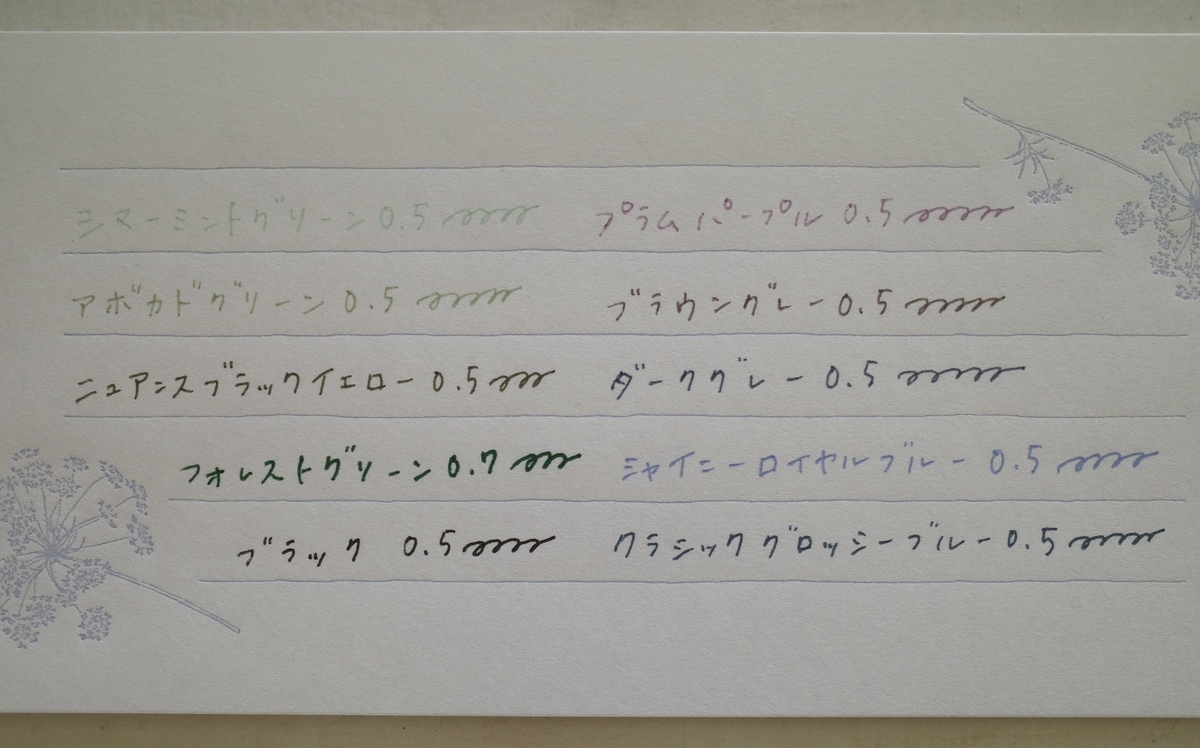 シマーミントグリーン 0.5 プラムパープル 0.5
アボカドグリーン 0.5 ブラウングレー 0.5
ニュアンスブラックイエロー 0.5 ダークグレー 0.5
フォレストグリーン 0.7 シャイニーロイヤルブルー 0.5
ブラック 0.5 クラシックグロッシーブルー 0.5